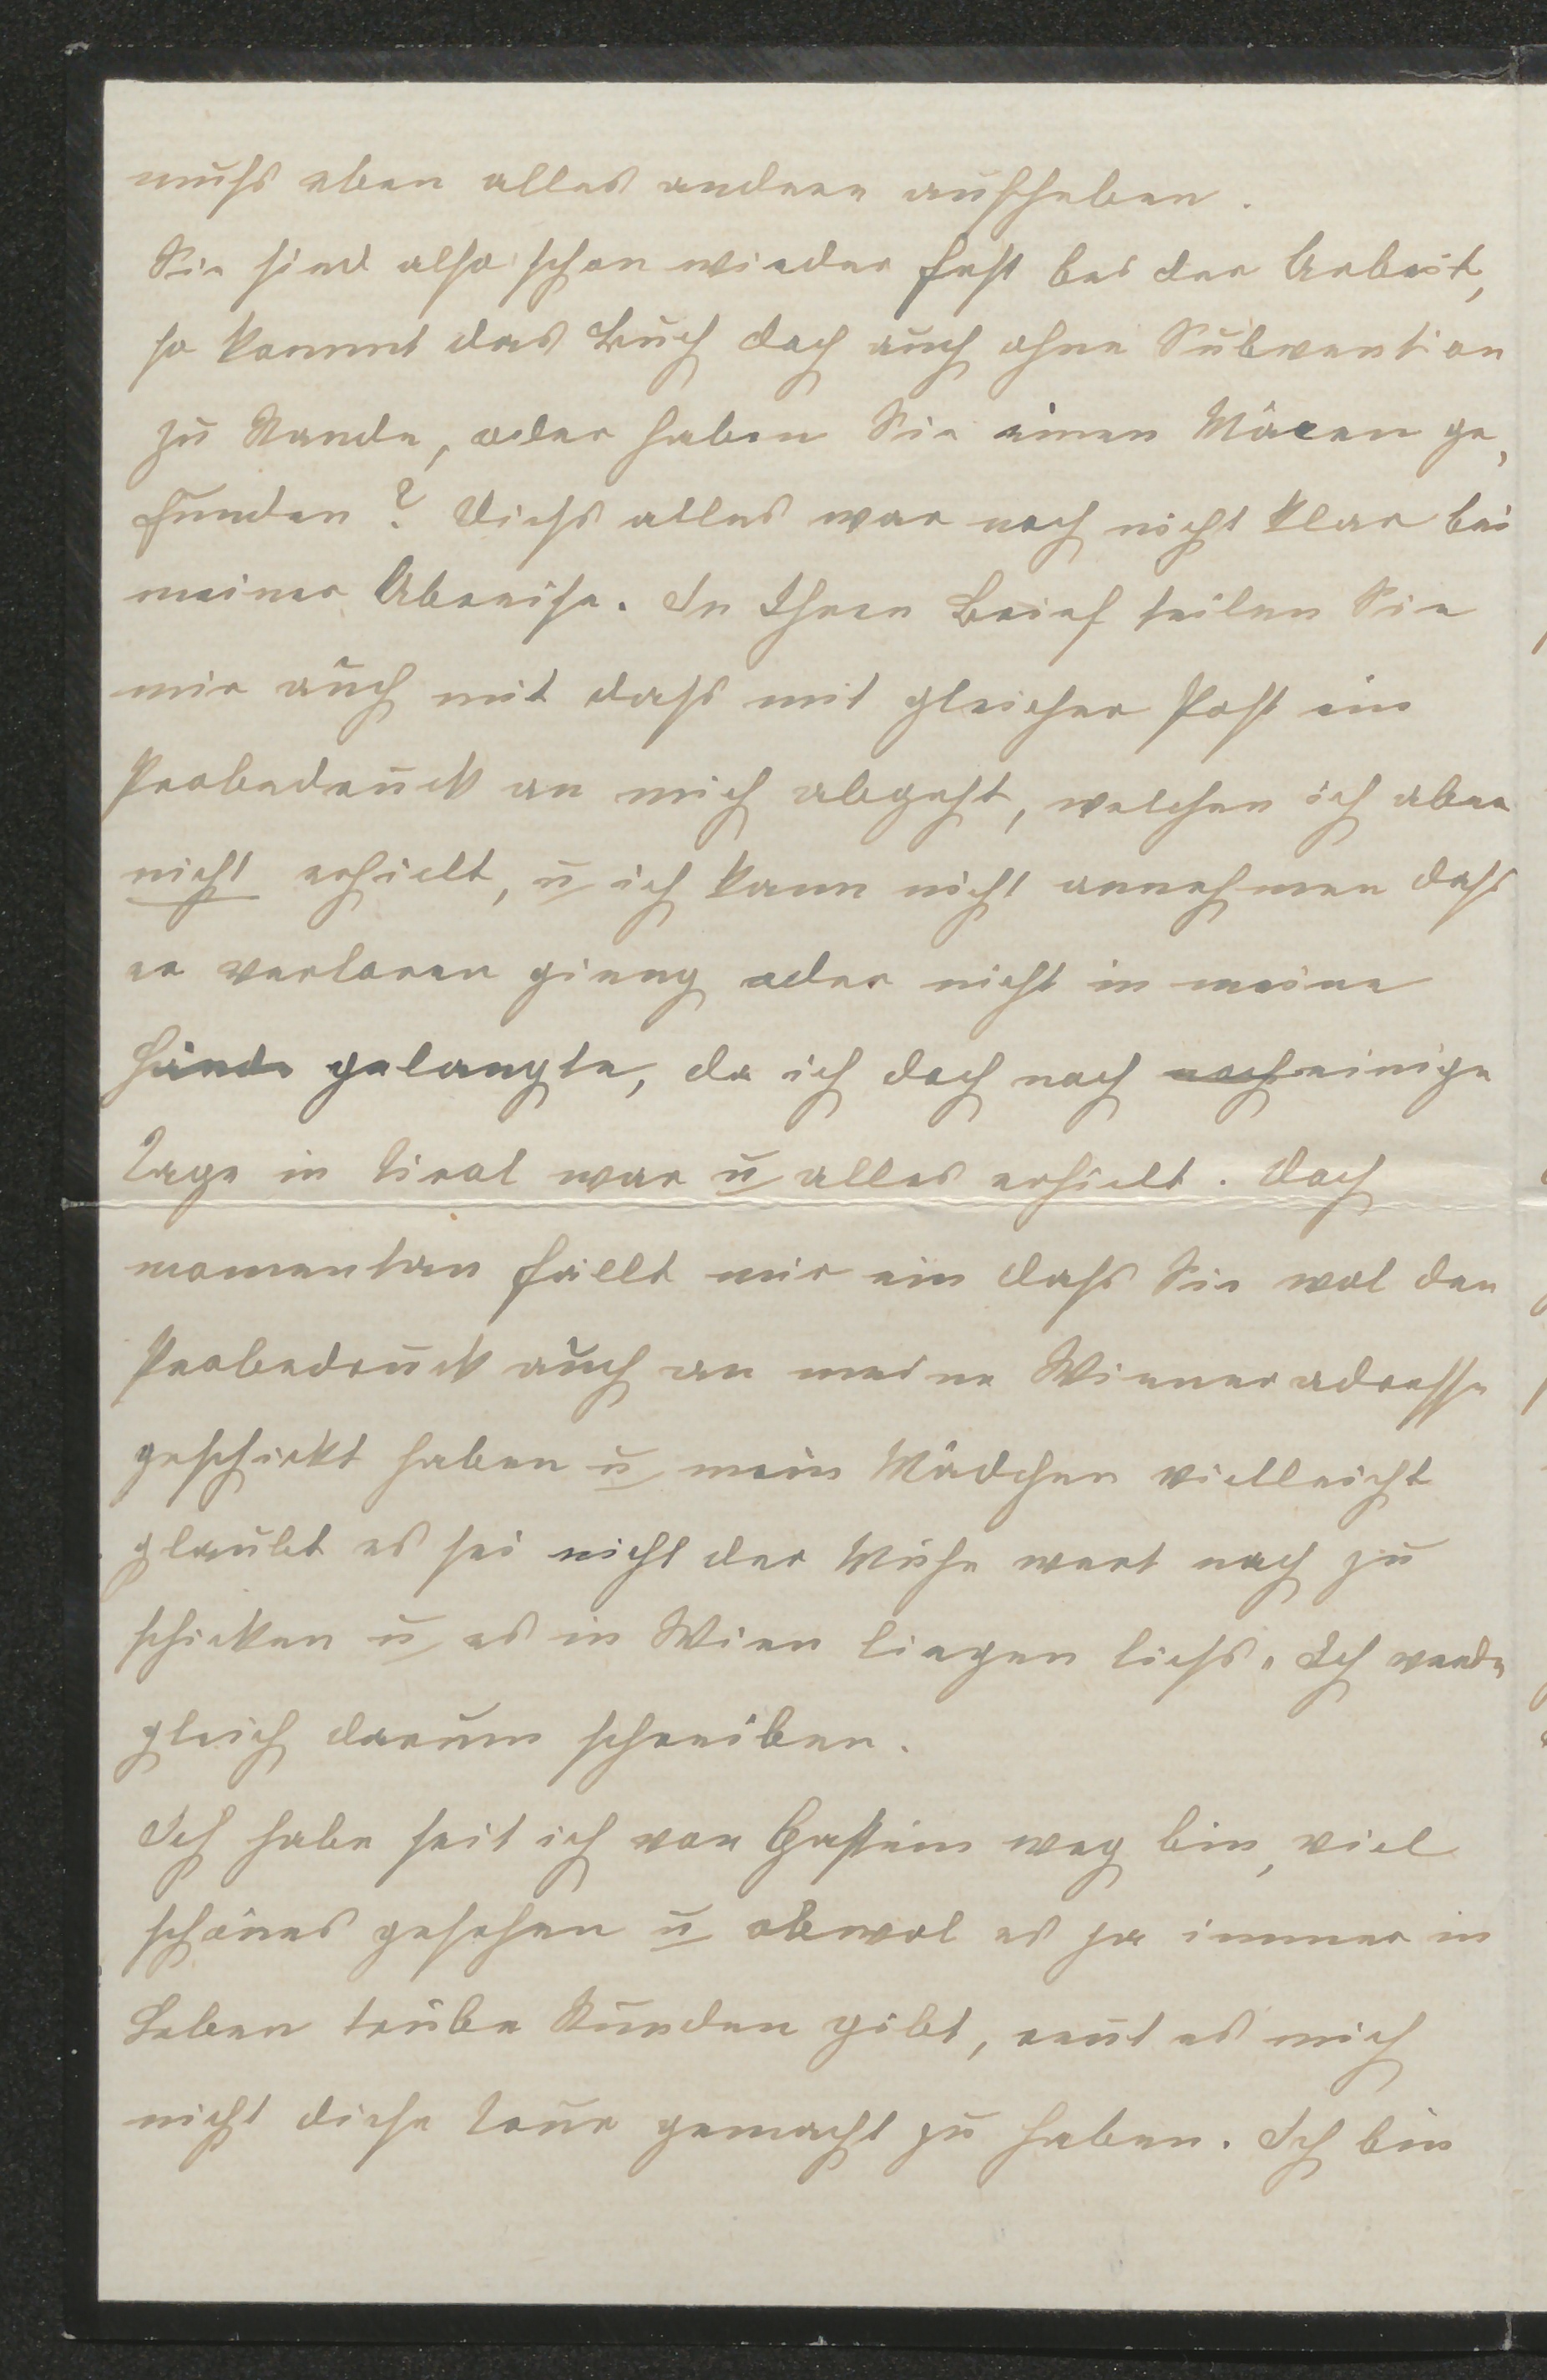 muſs eben alles andere aufheben.
Sie sind also schon wieder fest bei der Arbeit,
so kommt das Buch doch auch ohne Subvention
zu Stande, oder haben Sie einen Mäcen ge„
funden? Dieſs alles war noch nicht klar bei
meiner Abreise. In Ihren Brief teilen Sie
mir auch mit daſs mit gleicher Post ein
Probedruck an mich abgeht, welchen ich aber
nicht erhielt, u ich kann nicht annehmen daſs
er verloren gieng oder nicht in meine
Hände gelangte, da ich doch noch noch einige
Tage in Tirol war u alles erhielt. Doch
momentan fällt mir ein daſs Sie wol den
Probedruck auch an meine Wieneradresse
geschickt haben u mein Mädchen vielleicht
glaubt es sei nicht der Mühe wert nach zu
schicken u es in Wien liegen lieſs. Ich werde
gleich darum schreiben.
Ich habe seit ich von Gastein weg bin, viel
schönes gesehen u obwol es ja immer im
Leben trübe Stunden gibt, reut es mich
nicht diese Tour gemacht zu haben. Ich bin